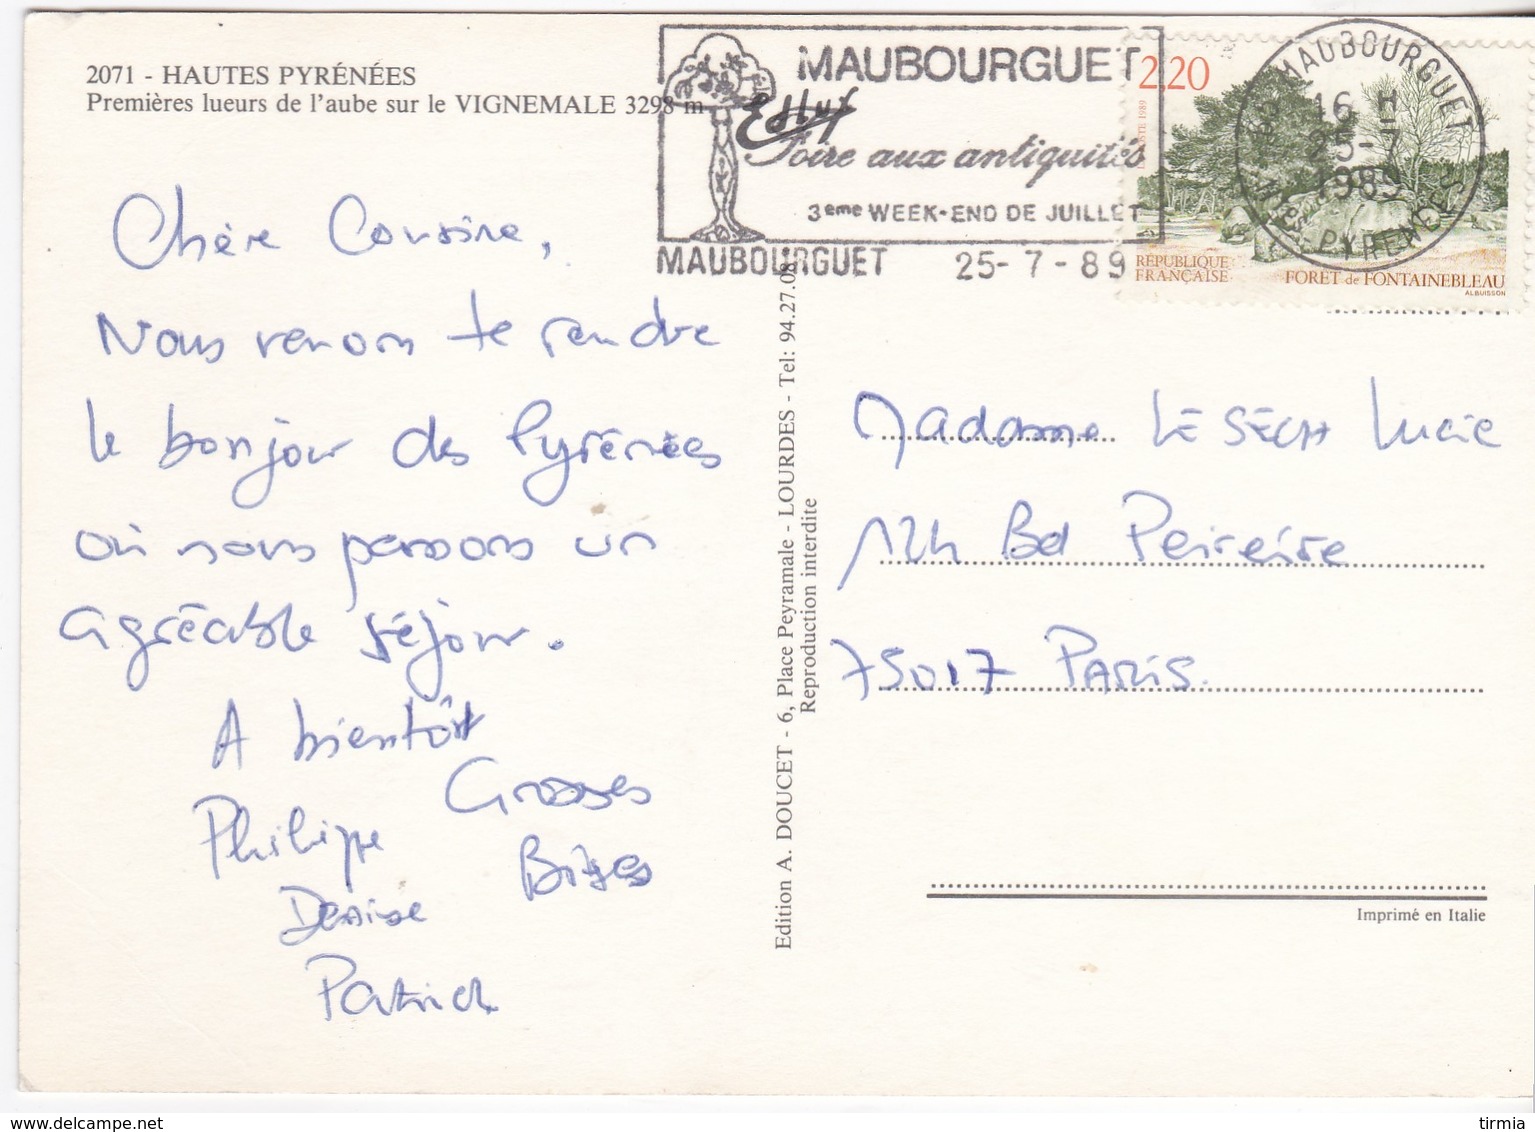 2071 - HAUTES PYRÉNÉES
Premières lueurs de l'aube sur le VIGNEMALE 3298 m
Chère Cousine,
Nous venons te rendre
le bonjour des Pyrénées
où nous passons un
agréable séjour.
A bientôt
Grosses
Bises
Philippe
Denise
Patrick
MAUBOURGUET
Foire aux antiquités
3eme WEEK-END DE JUILLET
MAUBOURGUET 25-7-89
2,20
LA POSTE 1989
RÉPUBLIQUE
FRANÇAISE
FORÊT de FONTAINEBLEAU
ALBUISSON
MAUBOURGUET
16 H
25-7
1989
HTES-PYRENEES
Edition A. DOUCET - 6, Place Peyramale - LOURDES - Tel: 94.27.08
Reproduction interdite
Madame LE SECH Lucie
124 Bd Peireire
75017 PARIS.
Imprimé en Italie
tirmia